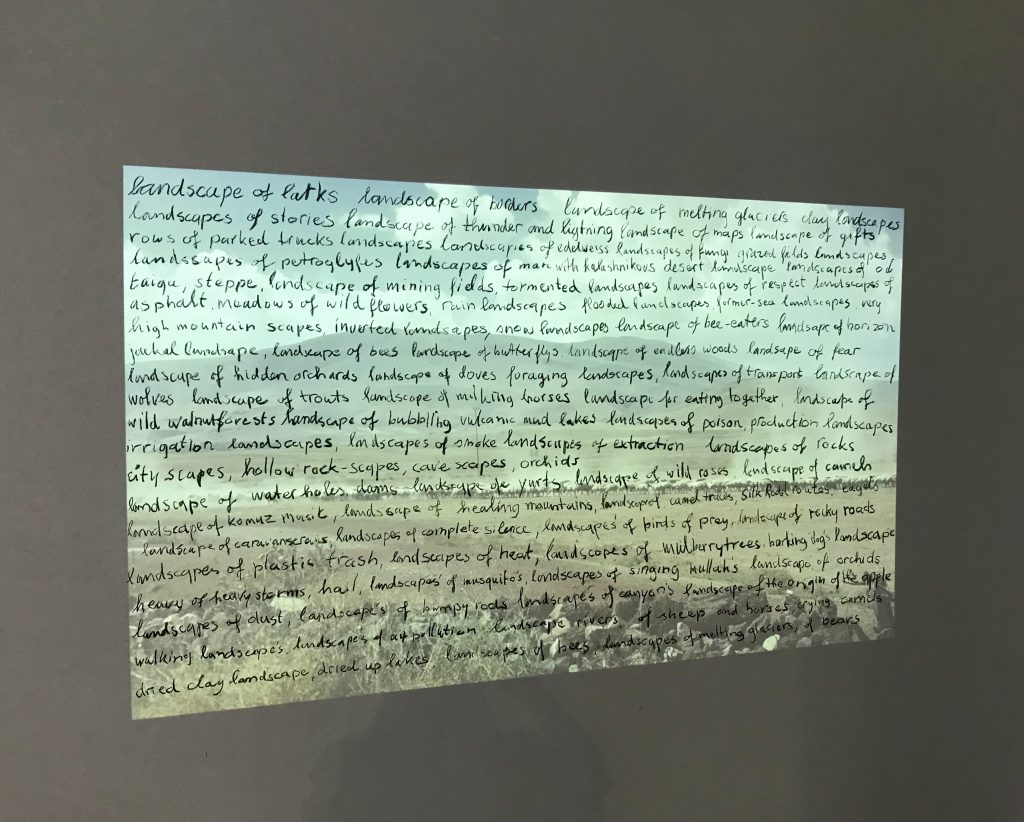 Landscape of larks landscape of borders landscape of melting glaciers clay landscapes
landscapes of stories landscape of thunder and lightning landscape of maps landscape of gifts
rows of parked trucks landscapes landscapes of edelweiss landscapes of fungi grazed fields landscapes
landssapes of petroglyfes landscapes of man with kalashnikovs desert landscape landscapes of oil
taiga, steppe, landscape of mining fields, tormented landscapes landscapes of respect landscapes of
asphalt, meadows of wild flowers, rain landscapes flooded landscapes, former-sea landscapes, very
high mountain scapes, inverted landsapes, snow landscapes landscape of bee-eaters landscape of horizon
jackal landsape, landscape of bees landscape of butterflys landscape of endless woods landsape of fear
landscape of hidden orchards landscape of doves foraging landscapes, landscapes of transport landscape of
wolves landscape of trouts landscape of milking horses landscape for eating together, landscape of
wild walnutforests landscape of bubbling vulcanic mud lakes landscapes of poison, production landscapes
irrigation landscapes, landscapes of smoke landscapes of extraction landscapes of rocks
city scapes, hollow rock-scapes, cave scapes, orchids
landscape of water holes, dams landscape of yurts landscape of wild roses landscape of camels
landscape of komuz musik, landscape of healing mountains, landscape of camel tracks, Silk Road routes, eagels
landscape of caravanserais, landscapes of complete silence, landscapes of birds of prey, landscape of rocky roads
landscapes of plastic trash, landscapes of heat, landscapes of mulberrytrees, barking dogs landscape
heavy of heavy storms, hail, landscapes of musquito's, landscapes of singing mullah's landscape of orchids
landscapes of dust, landscape's of bumpy rods landscape's of canyon's landscape of the origin of the apple
walking landscape's landscapes of air pollution landscape rivers of sheep and horses, crying camels
dried clay landscape, dried up lakes, landscapes of bees, landscapes of melting glaciers, of bears